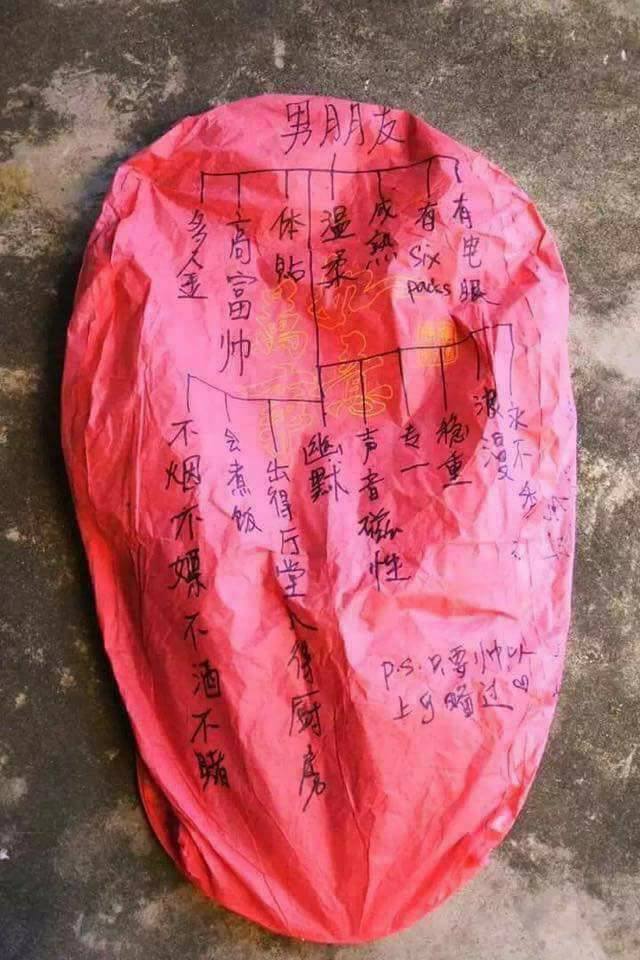 男朋友
多金
高富帅
体贴
温柔
成熟
有six packs
有电眼
不烟不嫖不酒不赌
会煮饭
出得厅堂入得厨房
幽默
声音磁性
专一
稳重
浪漫
永不
P.S. 只要帅以
上可略过♡